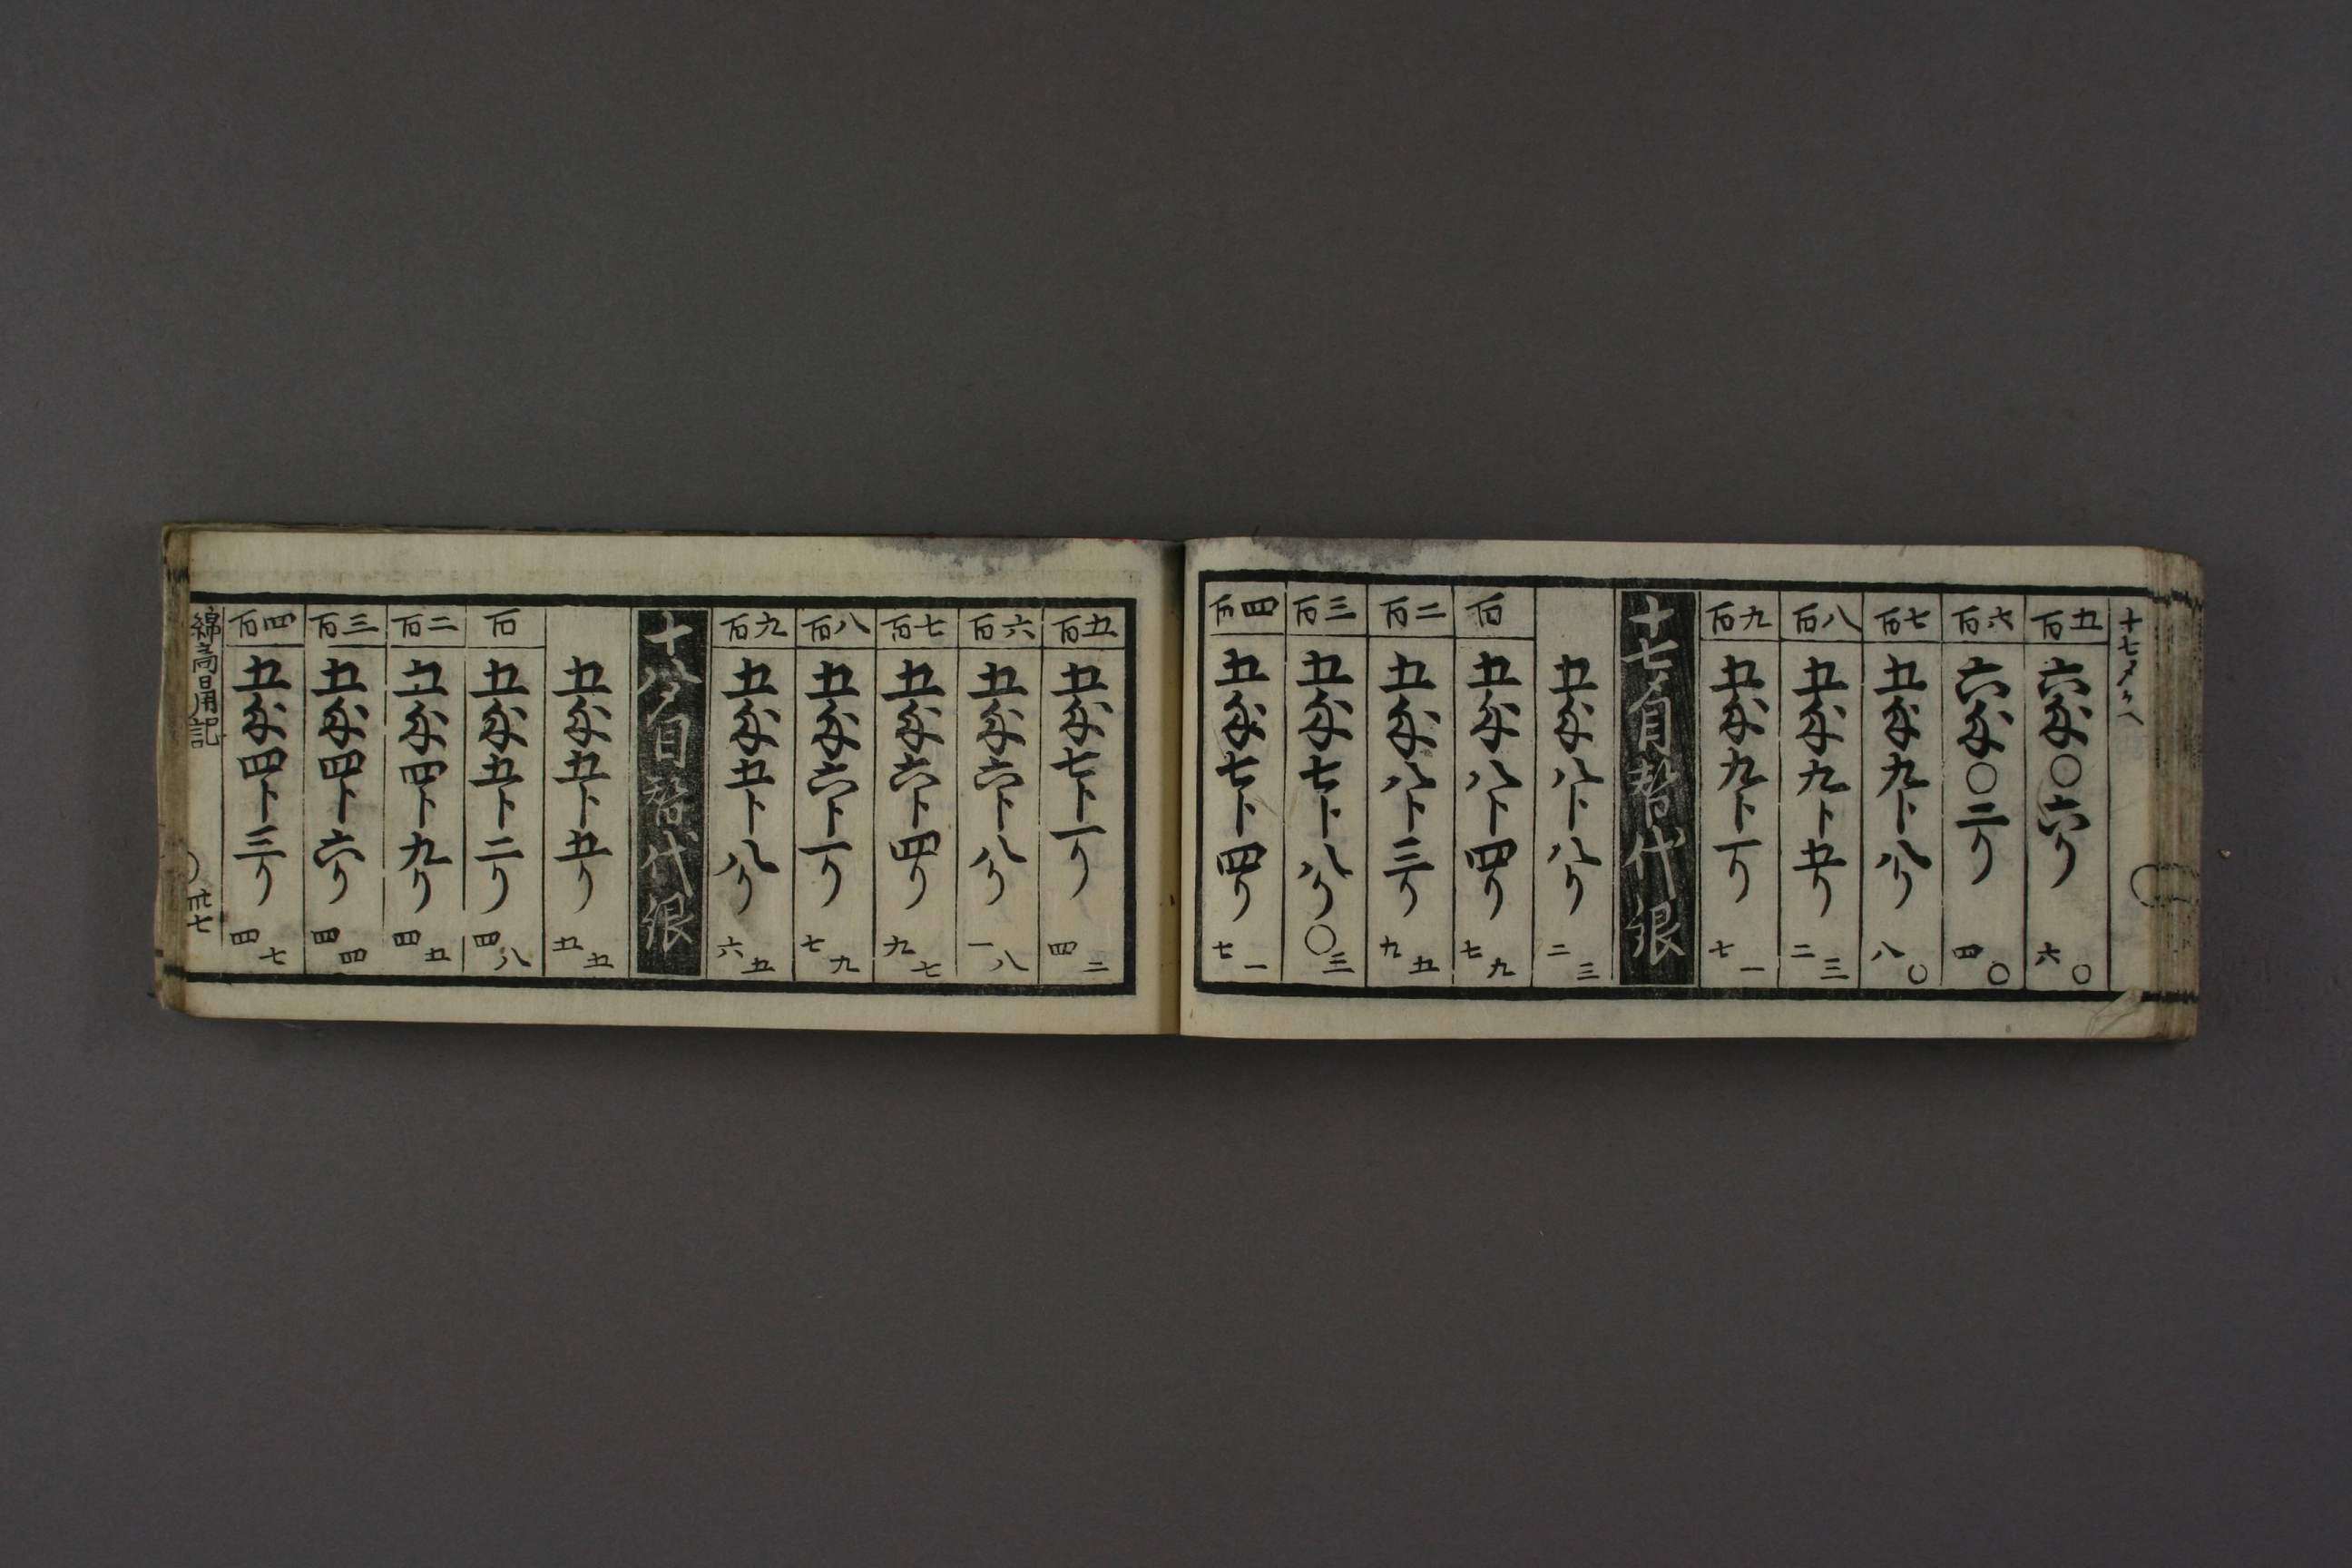 五百 六匁〇六リ 六〇
六百 六匁〇二リ 四〇
七百 五匁九卜八リ 八〇
八百 五匁九卜五リ 二三
九百 五匁九卜一リ 七一
十七〆目替代銀
五匁八卜八リ 二三
百 五匁八卜四リ 七九
二百 五匁八卜三リ 九五
三百 五匁七卜八リ 〇三
四百 五匁七卜四リ 七一
五百 五匁七卜一リ 四二
六百 五匁六卜八リ 一八
七百 五匁六卜四リ 九七
八百 五匁六卜一リ 七九
九百 五匁五卜八リ 六五
十八〆目替代銀
五匁五卜五リ 五五
百 五匁五卜二リ 四八
二百 五匁四卜九リ 四五
三百 五匁四卜六リ 四四
四百 五匁四卜三リ 四七
綿商日用記 丗七